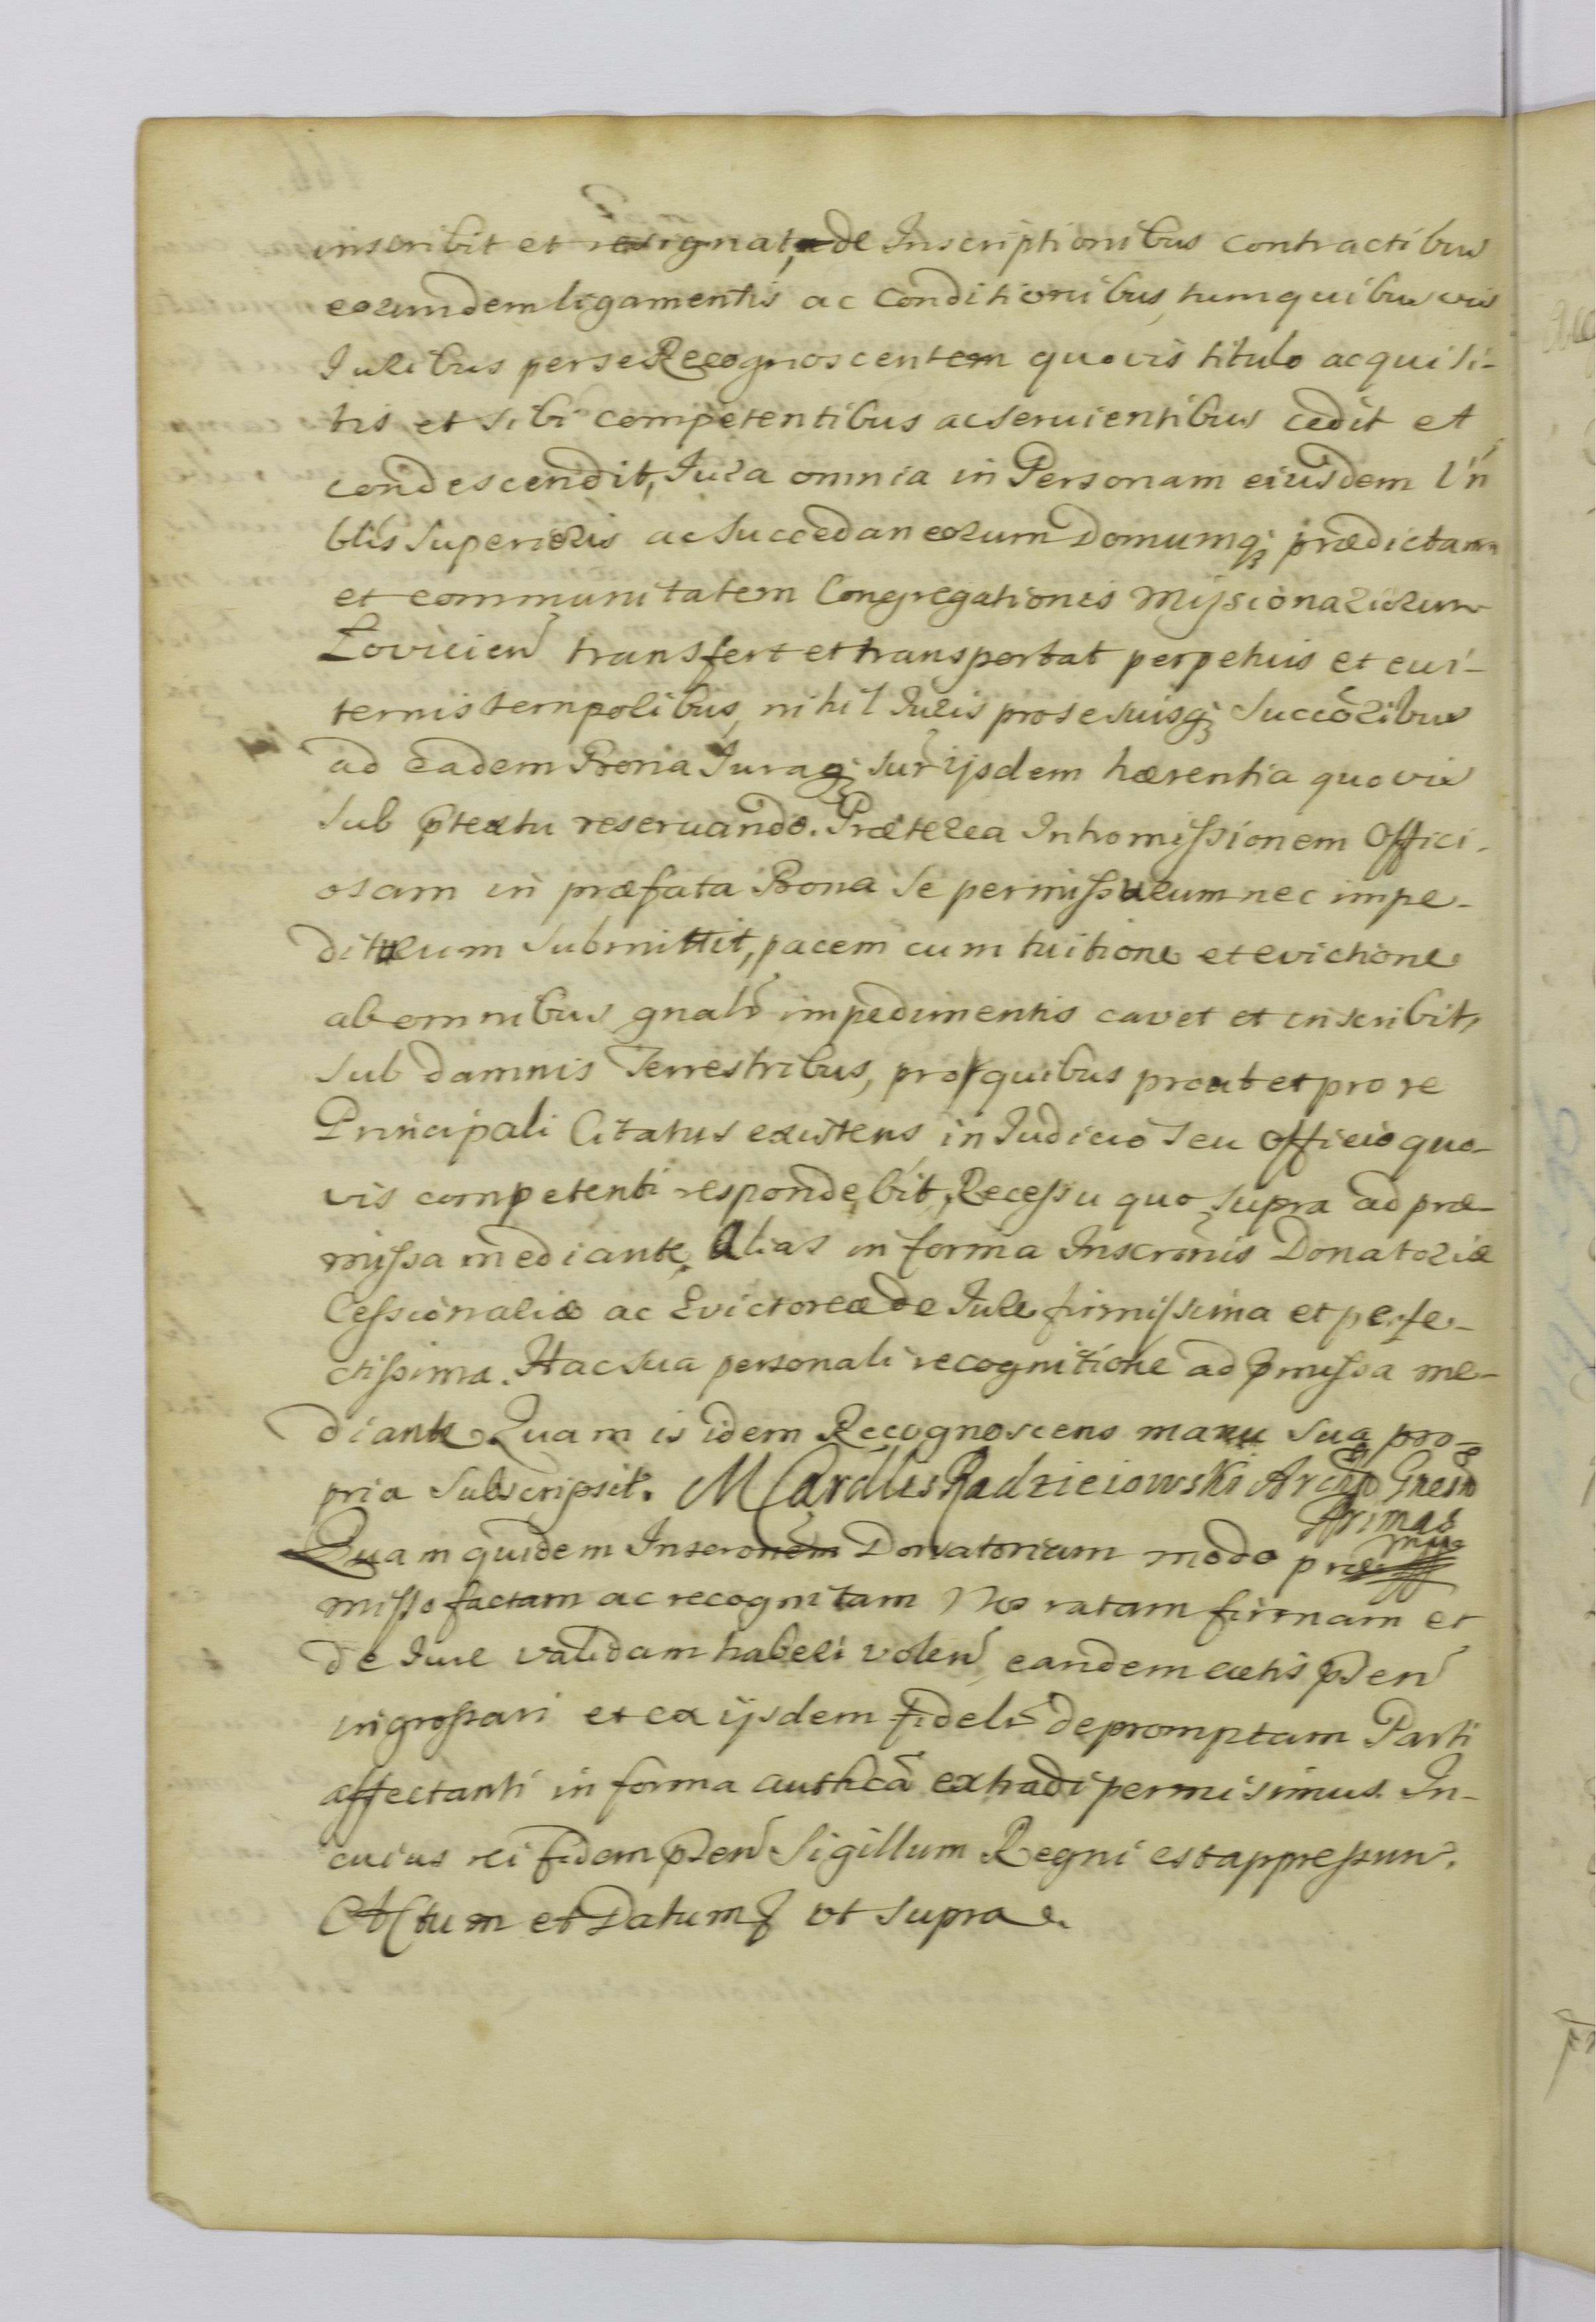 inscribit et resignat, de Inscriptionibus contractibus
eorumdem ligamentis ac Conditionibus, tum quibusvis
Iuribus per se Recognoscentem quovis titulo acquisi-
tis et sibi competentibus ac seruientibus cedit et
condescendit, Iura omnia in Personam eiusdem Vn
blis Superioris ac Succedaneorum Domumq₃ prædictam
et communitatem Congregationis Missionariorum
Łovicien̄ transfert et transportat perpetuis et evi-
ternis temporibus, nihil Iuris pro se suisq₃ Succōribus
ad eadem Bona Iuraq₃ sup ijsdem hærentia quovis
sub ptextu reseruando. Præterea Intromissionem Offici-
osam in præfata Bona se permissurum nec impe-
diturum submittit, pacem cum tuitione et evictione
ab omnibus gnalr̄ impedimentis cavet et inscribit,
sub damnis Terrestribus, pro quibus prout et pro re
Principali Citatus existens, in Iudicio seu Officio quo-
vis competenti respondebit, Recessu quo supra ad præ-
missa mediante. Alias in forma Inscrōnis Donatoriæ
Cessionaliæ ac Evictoreæ de Iure firmissima et perfe-
ctissima. Hac sua personali recognitione ad pmissa me-
diante. Quam is idem Recognoscens manu sua pro-
pria subscripsit. M Cardlis Radzieiowski Archēp Gnesn
Primas mp
Quam quidem Inscrōnem Donatoriam modo præ
misso factam ac recognitam Nos ratam firmam et
de Iure validam haberi volen̄, eandem actis pn̄sen̄
ingrossari et ex ijsdem fidelr̄ depromptam Parti
affectanti in forma authcā extradi permisimus. In-
cuius rei fidem pn̄sen̄ Sigillum Regni est appressum.
Actum et Datum ut supra.